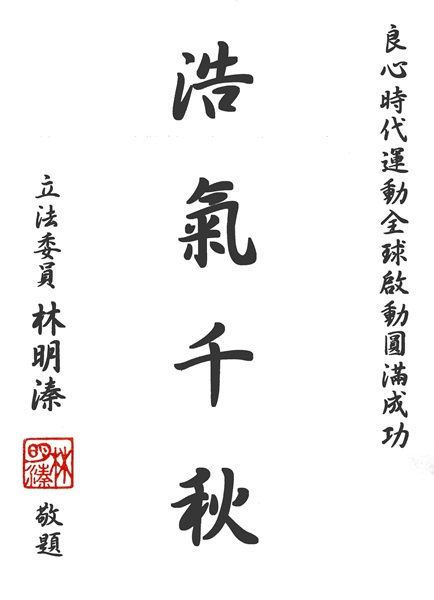 良心時代運動全球啟動圓滿成功
浩氣千秋
立法委員 林明溱
林明溱
敬題